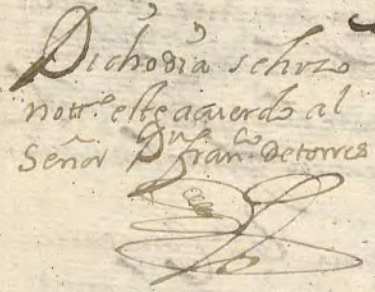 Dicho dia se hizo
notte. este acuerdo al
Señor Dn. franco. de torres